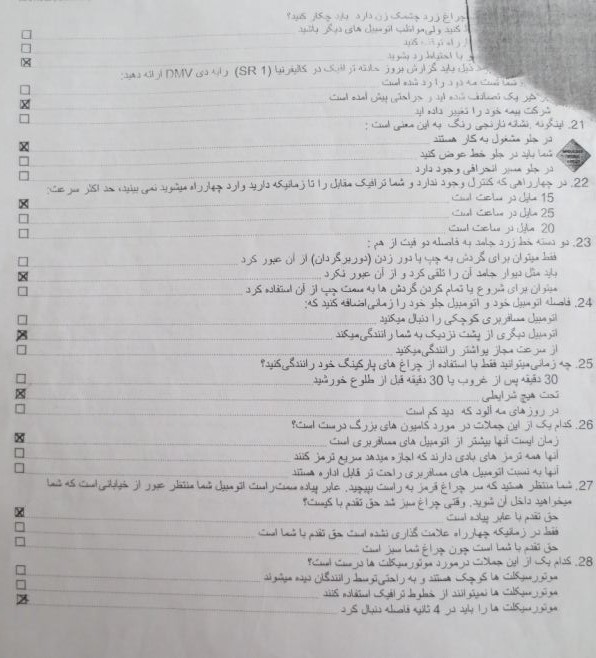 چراغ زرد چشمک زن دارد باید چکار کنید؟
کنید ولی مواظب اتومبیل های دیگر باشید
و با احتیاط رد بشوید
ذیل باید گزارش بروز حادثه ترافیک در کالیفرنیا (SR 1) را به دی DMV ارائه دهید:
یک تصادف شده اید و جراحتی پیش آمده است
شرکت بیمه خود را تغییر داده اید
21. اینگونه نشانه نارنجی رنگ به این معنی است :
در جلو مشغول به کار هستند
شما باید در جلو خط عوض کنید
در جلو مسیر انحرافی وجود دارد
22. در چهارراهی که کنترل وجود ندارد و شما ترافیک مقابل را تا زمانیکه دارید وارد چهارراه میشوید نمی بینید، حد اکثر سرعت:
15 مایل در ساعت است
25 مایل در ساعت است
20 مایل در ساعت است
23. دو دسته خط زرد جامد به فاصله دو فیت از هم :
فقط میتوان برای گردش به چپ یا دور زدن (دوربرگردان) از آن عبور کرد
باید مثل دیوار جامد آن را تلقی کرد و از آن عبور نکرد
میتوان برای شروع یا تمام کردن گردش ها به سمت چپ از آن استفاده کرد
24. فاصله اتومبیل خود و اتومبیل جلو خود را زمانی اضافه کنید که:
اتومبیل مسافربری کوچکی را دنبال میکنید
اتومبیل دیگری از پشت نزدیک به شما رانندگی میکند
از سرعت مجاز یواشتر رانندگی میکنید
25. چه زمانی میتوانید فقط با استفاده از چراغ های پارکینگ خود رانندگی کنید؟
30 دقیقه پس از غروب یا 30 دقیقه قبل از طلوع خورشید
تحت هیچ شرایطی
در روزهای مه آلود که دید کم است
26. کدام یک از این جملات در مورد کامیون های بزرگ درست است؟
زمان ایست آنها بیشتر از اتومبیل های مسافربری است
آنها همه ترمز های بادی دارند که اجازه میدهد سریع ترمز کنند
آنها به نسبت اتومبیل های مسافربری راحت تر قابل اداره هستند
27. شما منتظر هستید که سر چراغ قرمز به راست بپیچید. عابر پیاده سمت راست اتومبیل شما منتظر عبور از خیابانی است که شما
میخواهید داخل آن شوید. وقتی چراغ سبز شد حق تقدم با کیست؟
حق تقدم با عابر پیاده است
فقط در زمانیکه چهارراه علامت گذاری نشده است حق تقدم با شما است
حق تقدم با شما است چون چراغ شما سبز است
28. کدام یک از این جملات درمورد موتورسیکلت ها درست است؟
موتورسیکلت ها کوچک هستند و به راحتی توسط رانندگان دیده میشوند
موتورسیکلت ها نمیتوانند از خطوط ترافیک استفاده کنند
موتورسیکلت ها را باید در 4 ثانیه فاصله دنبال کرد